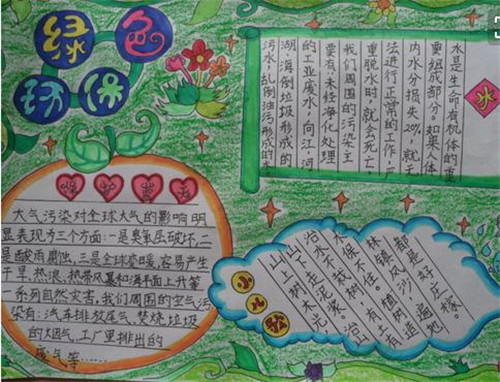 绿色
环保
水
水是生命有机体的重
要组成部分。如果人体
内水分损失20%,就无
法进行正常的工作,严
重脱水时,就会死亡。
我们周围的污染主
要有:未经净化处理
的工业废水,向江、河、
湖、海倒垃圾形成的
污水,乱倒油污形成的
呵护蓝天
大气污染对全球大气的影响明
显表现为三个方面:一是臭氧层破坏,二
是酸雨腐蚀,三是全球变暖,容易产生
干旱、热浪、热带风暴和海平面上升等
一系列自然灾害。我们周围的空气污
染有:汽车排放尾气、焚烧垃圾
的烟气,工厂里排出的
废气等……
小儿歌
山上树木光
山下走泥浆。